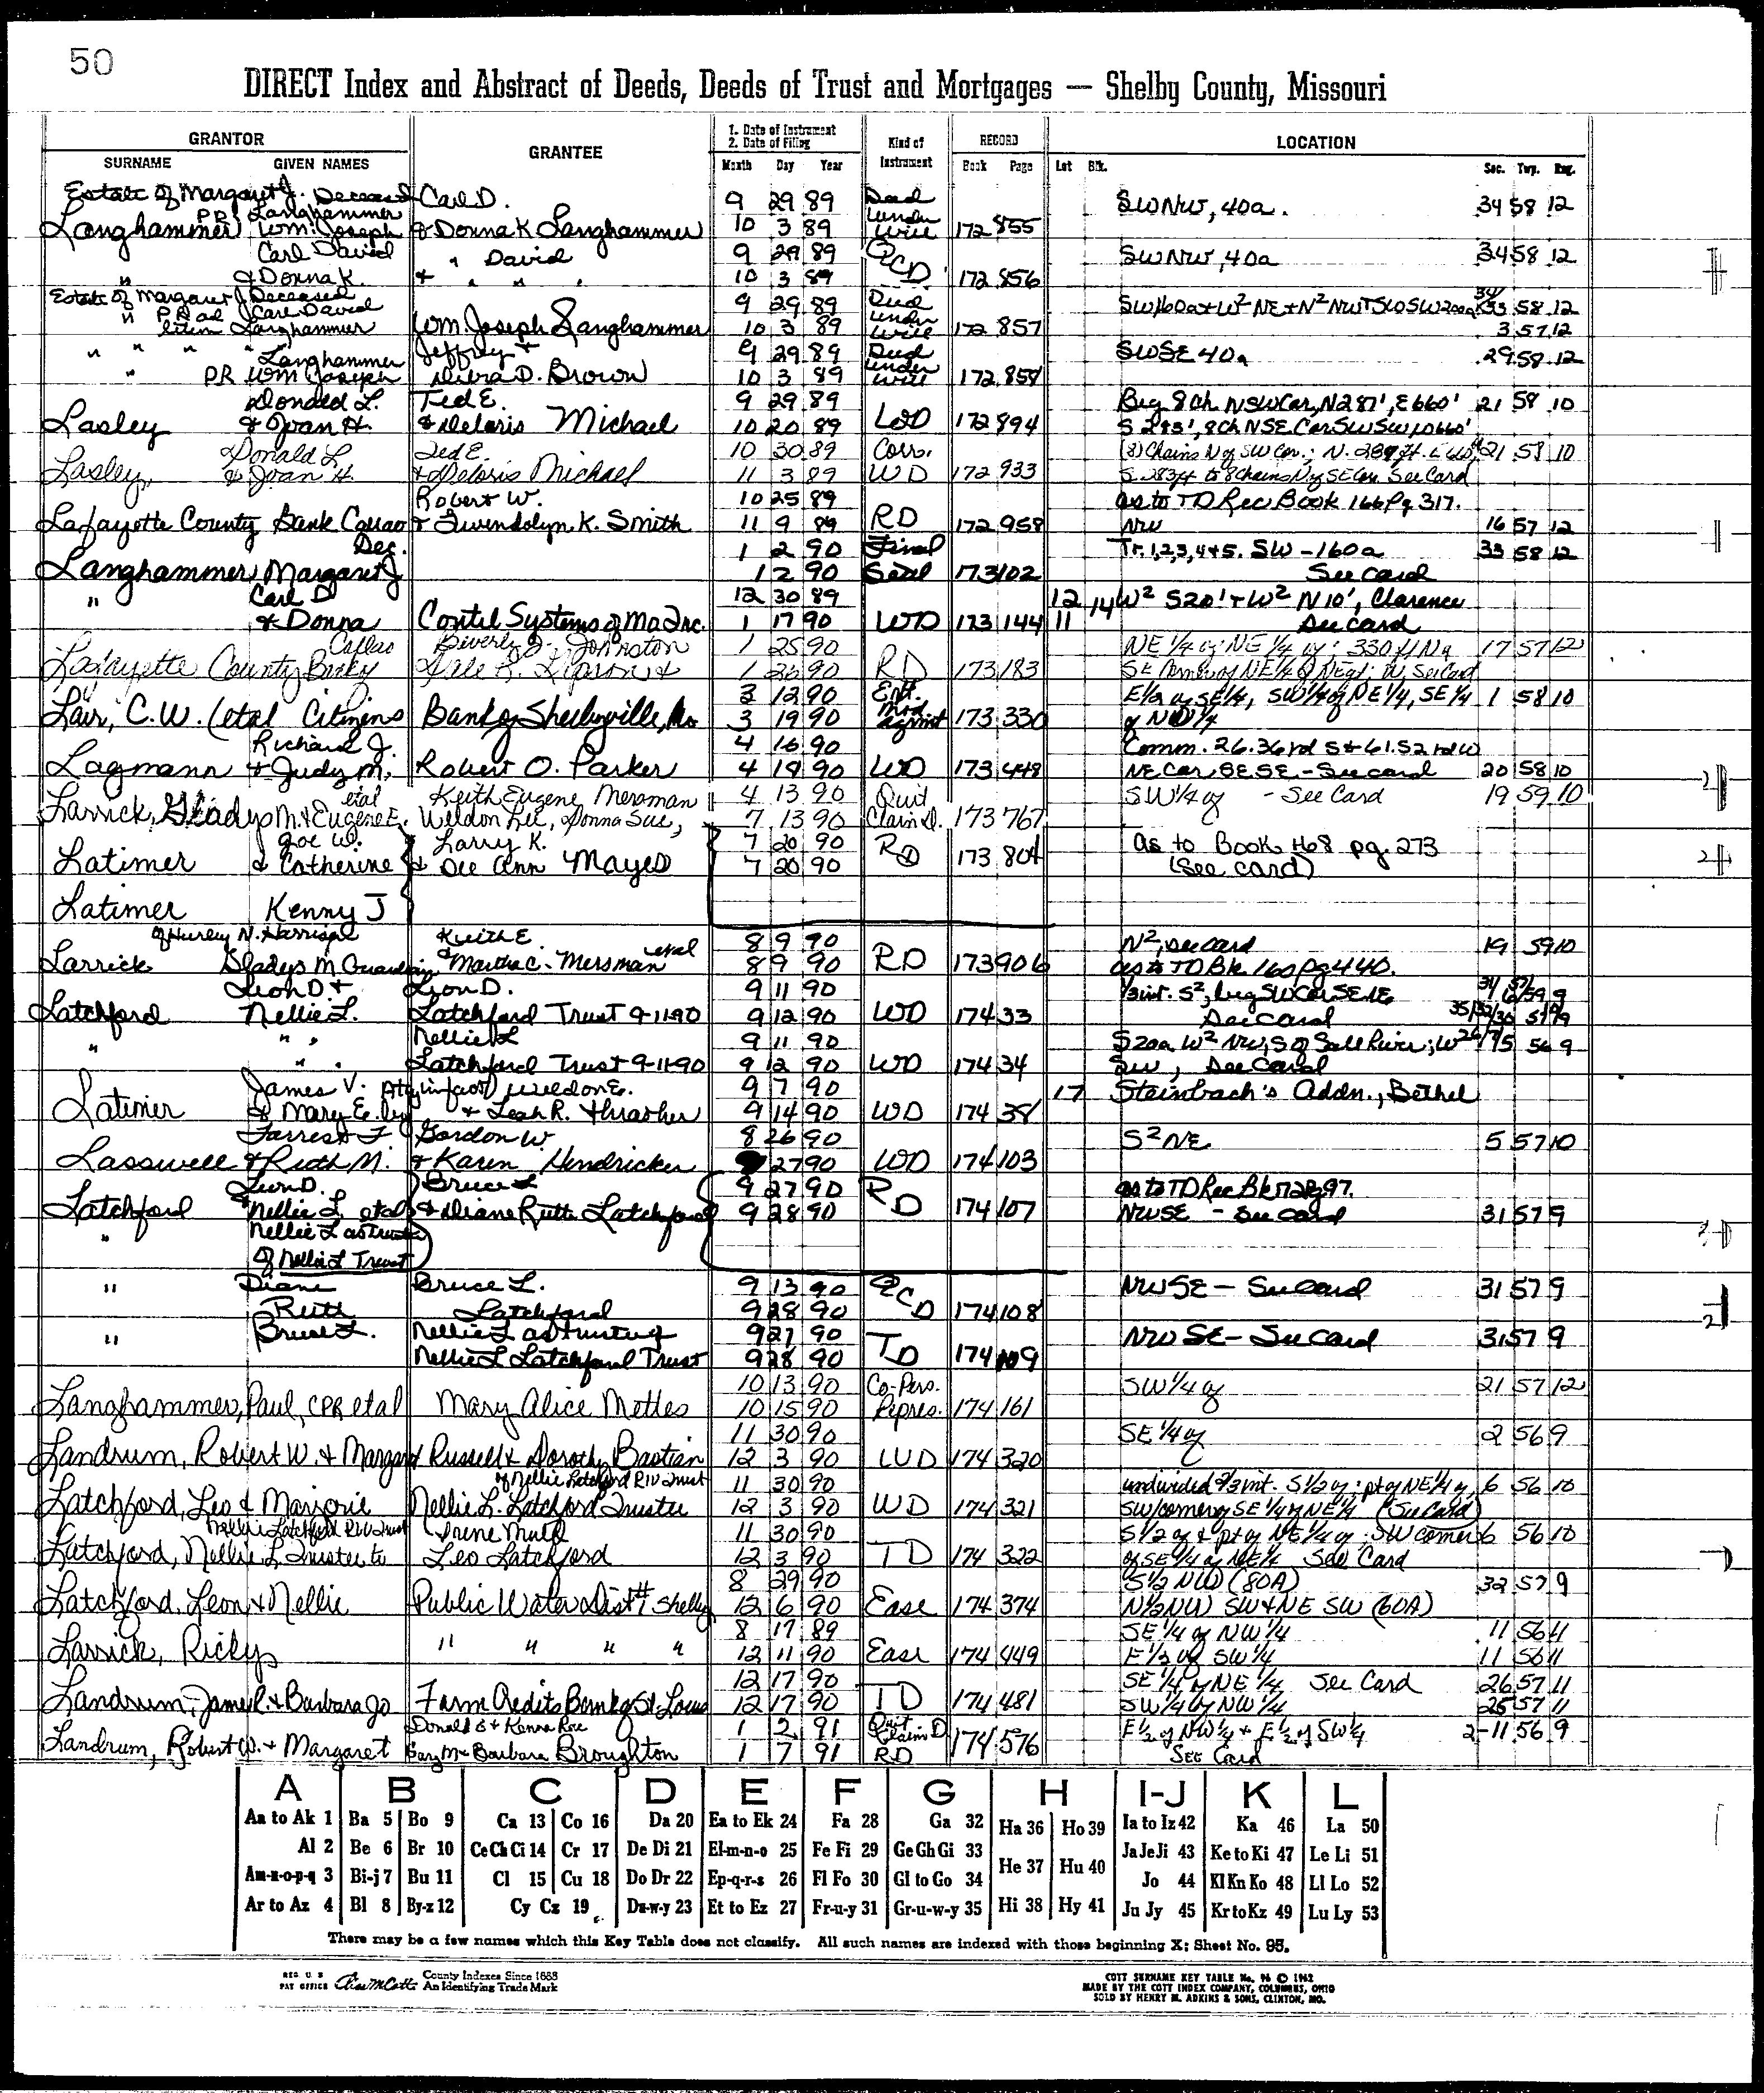 50
DIRECT Index and Abstract of Deeds, Deeds of Trust and Mortgages — Shelby County, Missouri
GRANTOR
SURNAME GIVEN NAMES
GRANTEE
1. Date of Instrument
2. Date of Filing
Month Day Year
Kind of Instrument
RECORD
Book Page
LOCATION
Lot Blk.
Sec. Twp. Rng.
Estate of Margaret J. Deceased Carl D. 9 29 89 Deed SWNW, 40a. 34 58 12
PR Langhammer under
Langhammer Wm. Joseph & Donna K Langhammer 10 3 89 Will 172 855
Carl David " David 9 29 89 QCD SWNW, 40a 34 58 12
" & Donna K. & " " " 10 3 89 172 856
Estate of Margaret J Deceased 9 29 89 Deed SW/160a + W² NE + N² NW + SWSW 200a 34/33 58 12
" PR ad Carl David under
litem Langhammer Wm. Joseph Langhammer 10 3 89 Will 172 857 3 57 12
" " " " Jeffrey & 9 29 89 Deed SWSE 40a 29 58 12
Langhammer under
" PR Wm Joseph Debra D. Brown 10 3 89 Will 172 858
Donald L. Ted E. 9 29 89 Beg 8Ch NSWCor, N287', E660' 21 58 10
Lasley & Joan H. & Deloris Michael 10 20 89 WD 172 894 S 283', 8Ch NSE Cor SWSW, 660'
Donald L Ted E. 10 30 89 Corr. (8) Chains N of SW Cor.; N. 289 ft. E 660 21 58 10
Lasley, & Joan H. & Deloris Michael 11 3 89 WD 172 933 S 283ft to 8Chains N of SE Cor See Card
Robert W. 10 25 89 as to TD Rec Book 166 Pg 317.
Lafayette County Bank Corrao & Gwendolyn K. Smith 11 9 89 RD 172 958 NW 16 57 12
Dec. 1 2 90 Final Tr. 1,2,3,4+5. SW - 160a 33 58 12
Langhammer Margaret J 1 2 90 Seal 173 102 See card
" Carl D 12 30 89 12 14 W² S20' + W² N10', Clarence
& Donna Contel Systems of Mo Inc. 1 17 90 WD 173 144 11 See card
Callao Beverly J. Johnston 1 25 90 NE 1/4 of NE 1/4 of; 330 ft N of 17 57 12
Lafayette County Bank of Dale L. & 1 26 90 RD 173 183 SE Corner of NE 1/4 of NE 1/4; W, See Card
3 12 90 Ext. E 1/2 of SE 1/4, SW 1/4 of NE 1/4, SE 1/4 1 58 10
Lair, C.W. (etal Citizens Bank of Shelbyville, Mo 3 19 90 Mod agmnt 173 330 of NW 1/4
Richard J. 4 16 90 Comm. 26.36 rd S + 61.52 rd W
Lagmann & Judy M. Robert O. Parker 4 19 90 WD 173 448 NE Cor, SESE - See card 20 58 10
etal Keith Eugene Mersman 4 13 90 Quit SW 1/4 of - See Card 19 59 10
Larrick, Gladys M. & Eugene E. Weldon Lee, Donna Sue, 7 13 90 Claim D. 173 767
Joe W. Larry K. 7 20 90 RD as to Book 168 pg. 273
Latimer & Catherine & Dee Ann Mayes 7 20 90 173 804 (See card)
Latimer Kenny J
of Hurley N. Harrison Keith E. 8 9 90 N², See card 19 59 10
Larrick Gladys M Guardian & Martha C. Mersman etal 8 9 90 RD 173 906 as to TD Bk 160 Pg 440.
Leon D & Leon D. 9 11 90 1/3 int. S², beg SW Cor SE NE
Latchford Nellie L. Latchford Trust 9-11-90 9 12 90 WD 174 33 See card
" " " Nellie L 9 11 90 S 20a W² NW, S of Salt River; W²
" " Latchford Trust 9-11-90 9 12 90 WD 174 34 SW, See Card
James V. Atty in fact) Weldon E. 9 7 90 17 Steinbach's Addn., Bethel
Latimer & Mary E. by & Leah R. Thrasher 9 14 90 WD 174 38
Forrest F Gordon W. 8 26 90 S² NE 5 57 10
Lasswell & Ruth M. & Karen Hendricker 27 90 WD 174 103
Leon D. Bruce L 9 27 90 RD as to TD Rec Bk 172 Pg 97.
Latchford & Nellie L etal & Diane Ruth Latchford 9 28 90 174 107 NWSE - See card 31 57 9
" Nellie L as Trustee
Of Nellie L Trust
" Diane Bruce L. 9 13 90 QCD NWSE - See Card 31 57 9
Ruth Latchford 9 28 90 174 108
" Bruce L. Nellie L as Trustee of 9 27 90 TD NW SE - See Card 31 57 9
Nellie L Latchford Trust 9 28 90 174 109
10 13 90 Co-Pers. SW 1/4 of 21 57 12
Langhammer, Paul, CPR etal Mary Alice Mettes 10 15 90 Repres. 174 161
11 30 90 SE 1/4 of 2 56 9
Landrum, Robert W. & Margaret Russell & Dorothy Bastian 12 3 90 WD 174 320
of Nellie Latchford RIV Trust 11 30 90 undivided 2/3 int. S 1/2 of; pt of NE 1/4 of, 6 56 10
Latchford, Leo & Marjorie Nellie L. Latchford Trustee 12 3 90 WD 174 321 SW/corner of SE 1/4 of NE 1/4 (See Card)
Nellie Latchford RIV Trust Irene Mull 11 30 90 S 1/2 of & pt of NE 1/4 of; SW corner 6 56 10
Latchford, Nellie L Trustee to Leo Latchford 12 3 90 TD 174 322 of SE 1/4 of NE 1/4 See Card
8 29 90 S 1/2 NW (80A) 32 57 9
Latchford, Leon & Nellie Public Water Dist #1 Shelby 12 6 90 Ease 174 374 N 1/2 NW SW & NE SW (60A)
8 17 89 SE 1/4 of NW 1/4 11 56 11
Larrick, Ricky " " " " 12 11 90 Ease 174 449 E 1/2 of SW 1/4 11 56 11
12 17 90 SE 1/4 of NE 1/4 See Card 26 57 11
Landrum, James R. & Barbara Jo Farm Credit Bank of St. Louis 12 17 90 TD 174 481 SW 1/4 of NW 1/4 25 57 11
Donald E & Kenna Rae 1 2 91 Quit Claim D E 1/2 of NW 1/4 & E 1/2 of SW 1/4 2-11 56 9
Landrum, Robert W. & Margaret Gary M & Barbara Broughton 1 7 91 RD 174 576 See Card
A B C D E F G H I-J K L
Aa to Ak 1 Ba 5 Bo 9 Ca 13 Co 16 Da 20 Ea to Ek 24 Fa 28 Ga 32 Ha 36 Ho 39 Ia to Iz 42 Ka 46 La 50
Al 2 Be 6 Br 10 Ce Ch Ci 14 Cr 17 De Di 21 El-m-n-o 25 Fe Fi 29 Ge Gh Gi 33 He 37 Hu 40 Ja Je Ji 43 Ke to Ki 47 Le Li 51
Am-n-o-p-q 3 Bi-j 7 Bu 11 Cl 15 Cu 18 Do Dr 22 Ep-q-r-s 26 Fl Fo 30 Gl to Go 34 Hi 38 Hy 41 Jo 44 Kl Kn Ko 48 Ll Lo 52
Ar to Az 4 Bl 8 By-z 12 Cy Cz 19 Du-w-y 23 Et to Ez 27 Fr-u-y 31 Gr-u-w-y 35 Ju Jy 45 Kr to Kz 49 Lu Ly 53
There may be a few names which this Key Table does not classify. All such names are indexed with those beginning X: Sheet No. 95.
REG. U S PAT OFFICE
County Indexes Since 1888
An Identifying Trade Mark
COTT SURNAME KEY TABLE No. 96 © 1962
MADE BY THE COTT INDEX COMPANY, COLUMBUS, OHIO
SOLD BY HENRY M. ADKINS & SONS, CLINTON, MO.